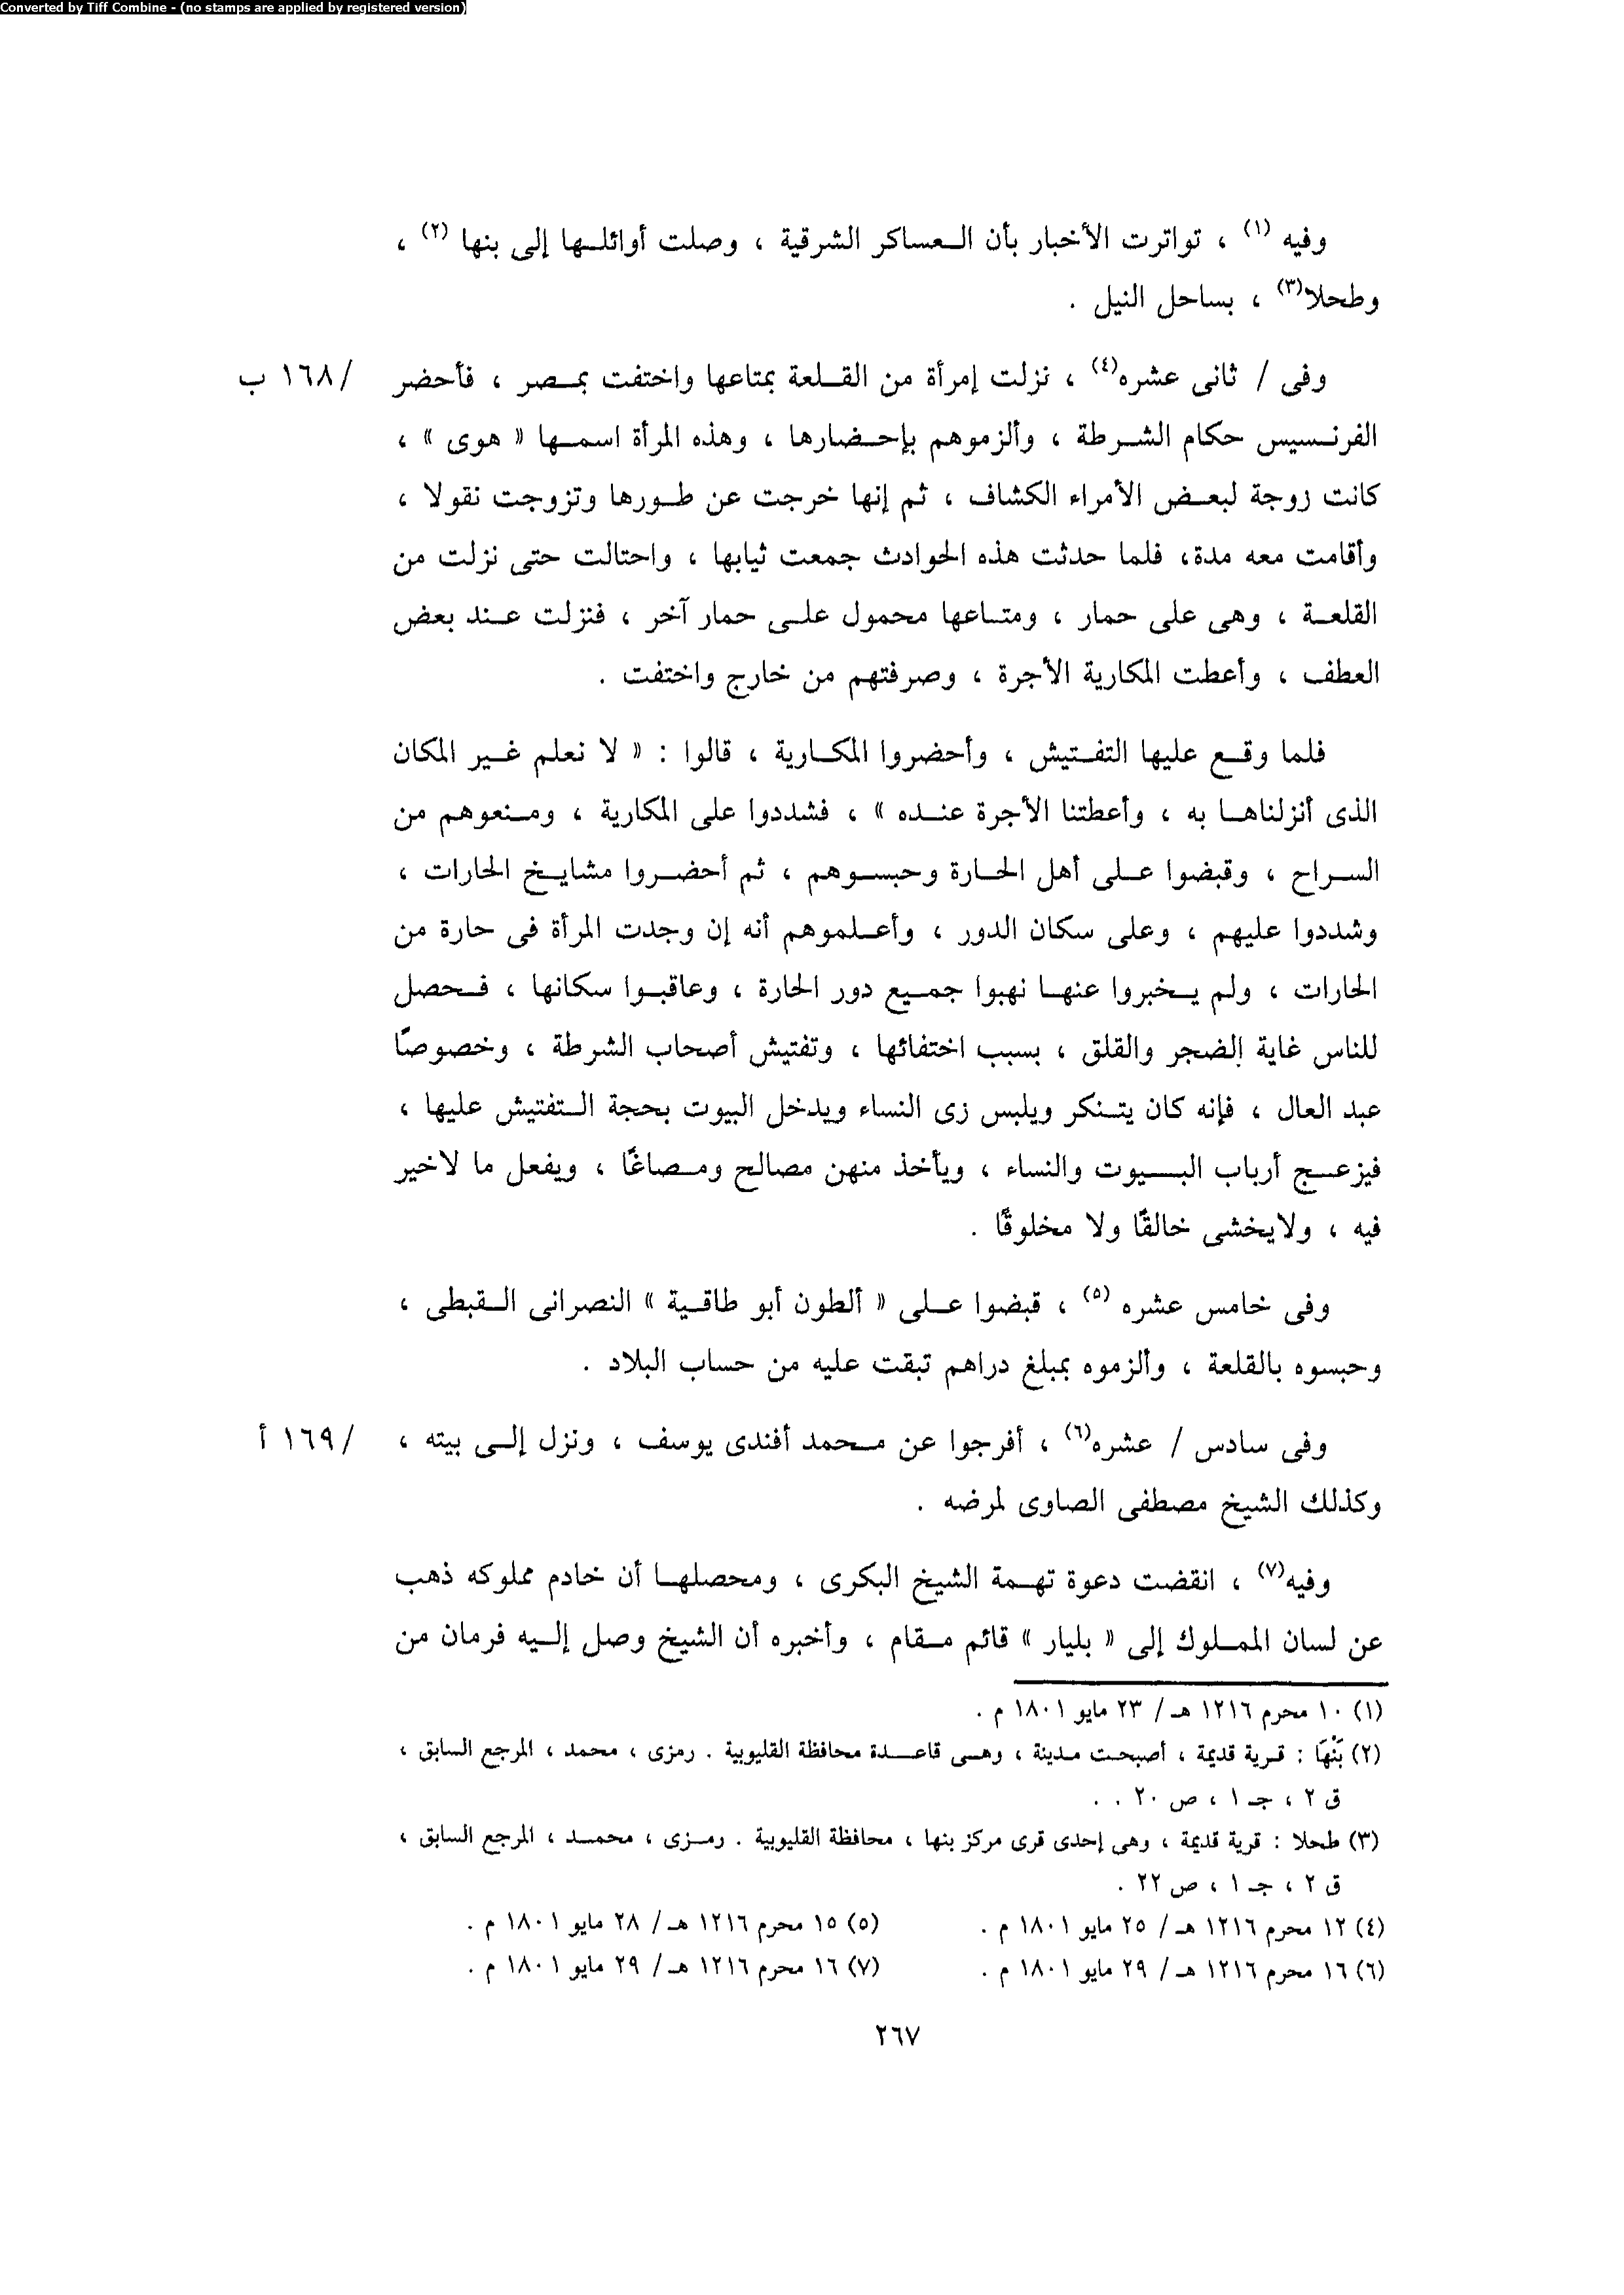 Converted by Tiff Combine - (no stamps are applied by registered version)
وفيه (١) ، تواترت الأخبار بأن العساكر الشرقية ، وصلت أوائلها إلى بنها (٢) ،
وطحلا(٣) ، بساحل النيل .
وفى / ثانى عشره(٤) ، نزلت إمرأة من القلعة بمتاعها واختفت بمصر ، فأحضر / ١٦٨ ب
الفرنسيس حكام الشرطة ، وألزموهم بإحضارها ، وهذه المرأة اسمها « هوى » ،
كانت زوجة لبعض الأمراء الكشاف ، ثم إنها خرجت عن طورها وتزوجت نقولا ،
وأقامت معه مدة، فلما حدثت هذه الحوادث جمعت ثيابها ، واحتالت حتى نزلت من
القلعة ، وهى على حمار ، ومتاعها محمول على حمار آخر ، فنزلت عند بعض
العطف ، وأعطت المكارية الأجرة ، وصرفتهم من خارج واختفت .
فلما وقع عليها التفتيش ، وأحضروا المكارية ، قالوا : « لا نعلم غير المكان
الذى أنزلناها به ، وأعطتنا الأجرة عنده » ، فشددوا على المكارية ، ومنعوهم من
السراح ، وقبضوا على أهل الحارة وحبسوهم ، ثم أحضروا مشايخ الحارات ،
وشددوا عليهم ، وعلى سكان الدور ، وأعلموهم أنه إن وجدت المرأة فى حارة من
الحارات ، ولم يخبروا عنها نهبوا جميع دور الحارة ، وعاقبوا سكانها ، فحصل
للناس غاية الضجر والقلق ، بسبب اختفائها ، وتفتيش أصحاب الشرطة ، وخصوصًا
عبد العال ، فإنه كان يتنكر ويلبس زى النساء ويدخل البيوت بحجة التفتيش عليها ،
فيزعج أرباب البيوت والنساء ، ويأخذ منهن مصالح ومصاغًا ، ويفعل ما لاخير
فيه ، ولايخشى خالقًا ولا مخلوقًا .
وفى خامس عشره (٥) ، قبضوا على « ألطون أبو طاقية » النصرانى القبطى ،
وحبسوه بالقلعة ، وألزموه بمبلغ دراهم تبقت عليه من حساب البلاد .
وفى سادس / عشره(٦) ، أفرجوا عن محمد أفندى يوسف ، ونزل إلى بيته ، / ١٦٩ أ
وكذلك الشيخ مصطفى الصاوى لمرضه .
وفيه(٧) ، انقضت دعوة تهمة الشيخ البكرى ، ومحصلها أن خادم مملوكه ذهب
عن لسان المملوك إلى « بليار » قائم مقام ، وأخبره أن الشيخ وصل إليه فرمان من
(١) ١٠ محرم ١٢١٦ هـ / ٢٣ مايو ١٨٠١ م .
(٢) بَنْهَا : قرية قديمة ، أصبحت مدينة ، وهى قاعدة محافظة القليوبية . رمزى ، محمد ، المرجع السابق ،
ق ٢ ، جـ ١ ، ص ٢٠ . .
(٣) طحلا : قرية قديمة ، وهى إحدى قرى مركز بنها ، محافظة القليوبية . رمزى ، محمد ، المرجع السابق ،
ق ٢ ، جـ ١ ، ص ٢٢ .
(٤) ١٢ محرم ١٢١٦ هـ / ٢٥ مايو ١٨٠١ م . (٥) ١٥ محرم ١٢١٦ هـ / ٢٨ مايو ١٨٠١ م .
(٦) ١٦ محرم ١٢١٦ هـ / ٢٩ مايو ١٨٠١ م . (٧) ١٦ محرم ١٢١٦ هـ / ٢٩ مايو ١٨٠١ م .
٢٦٧